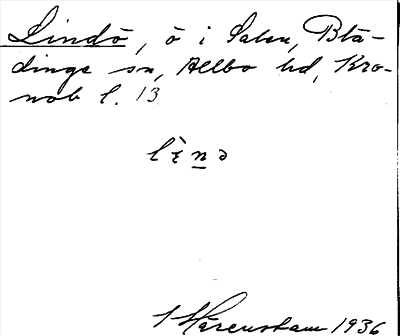 Lindö, ö i Salen, Blä-
dinge sn, Allbo hd, Kro-
nob l. 13
lὲnə
J Härenstam 1936